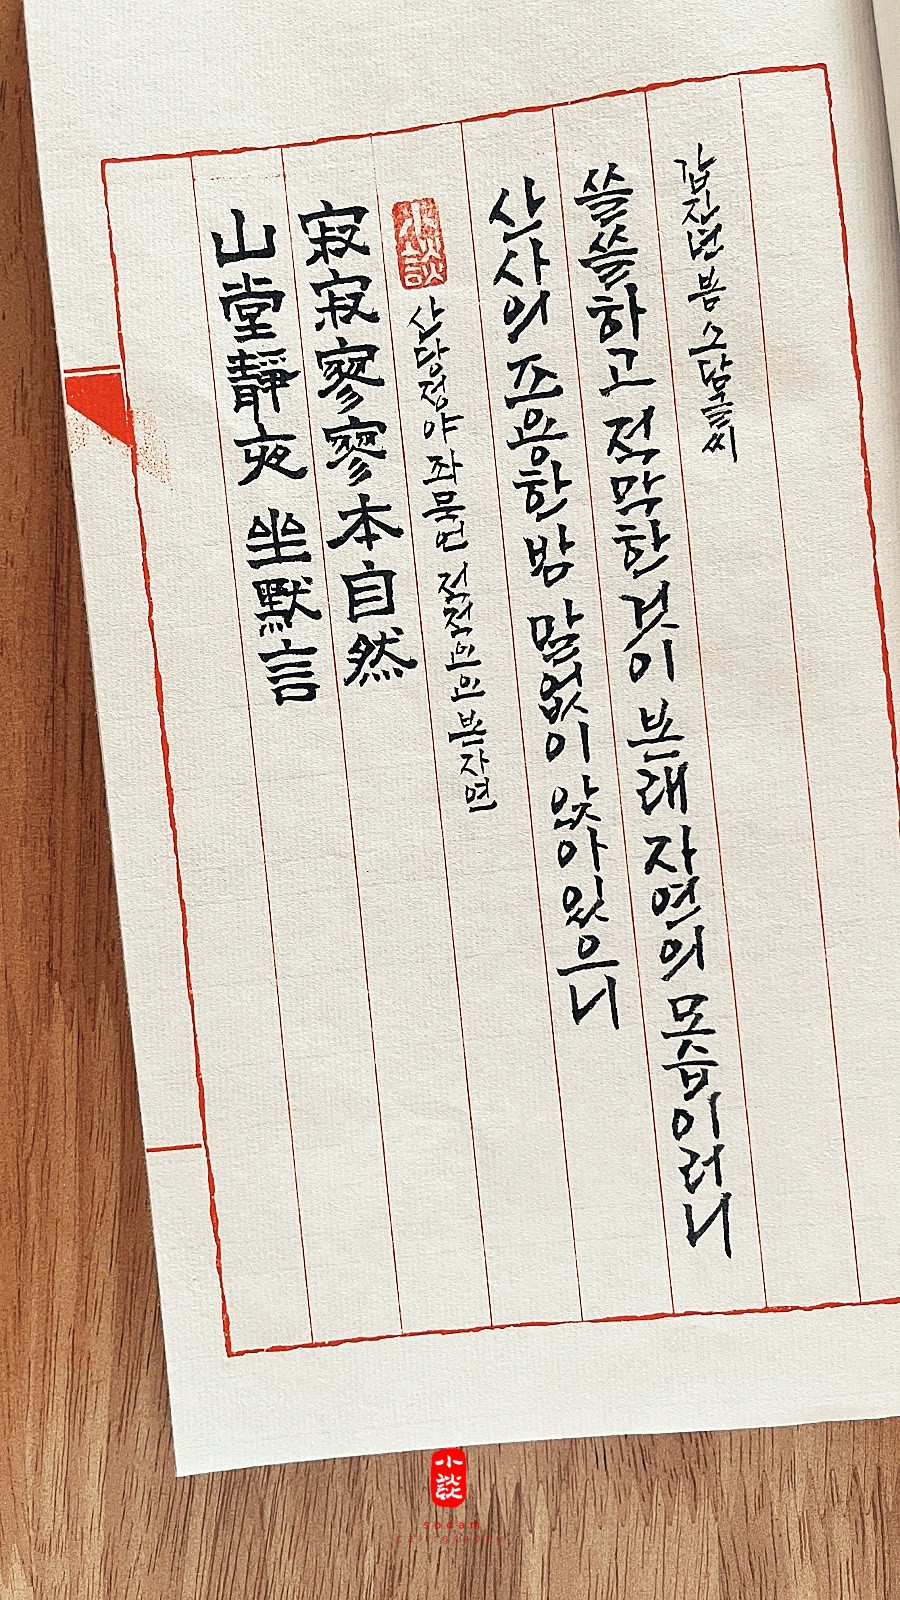 山堂靜夜 坐默言
寂寂寥寥本自然
小談
산당정야 좌묵언 적적요요본자연
산사의 조용한 밤 말없이 앉아있으니
쓸쓸하고 적막한 것이 본래 자연의 모습이러니
갑진년 봄 소담글씨
小談
sodam